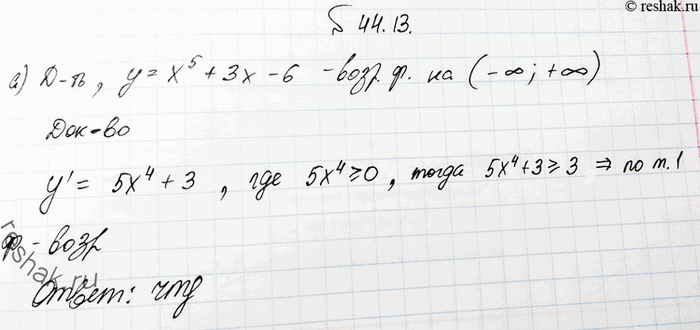 © reshak.ru
§ 44.13.
а) Д-ть, y = x⁵ + 3x - 6 - возр. ф. на (-∞; +∞)
Док-во
y' = 5x⁴ + 3, где 5x⁴ ≥ 0, тогда 5x⁴ + 3 ≥ 3 ⇒ по т. 1
ф. - возр
Ответ: чтд
reshak.ru